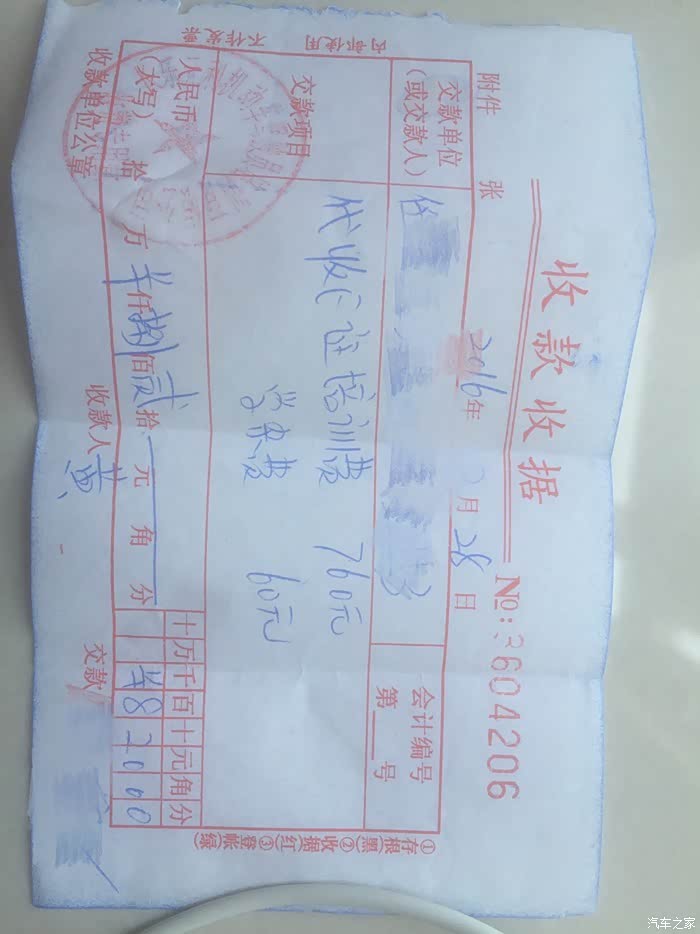 收款收据
№:3604206
附件 张
2016年 月28日
交款单位
(或交款人)
任
会计编号
第 号
交款项目
代收 证培训费 760元
学杂费 60元
人民币
(大写) 拾 万 仟捌佰贰拾 元 角 分
十万千百十元角分
82000
收款单位公章
收款人 黄
交款
①存根(黑)②收据(红)③登帐(绿)
内部使用
不作发票
汽车之家